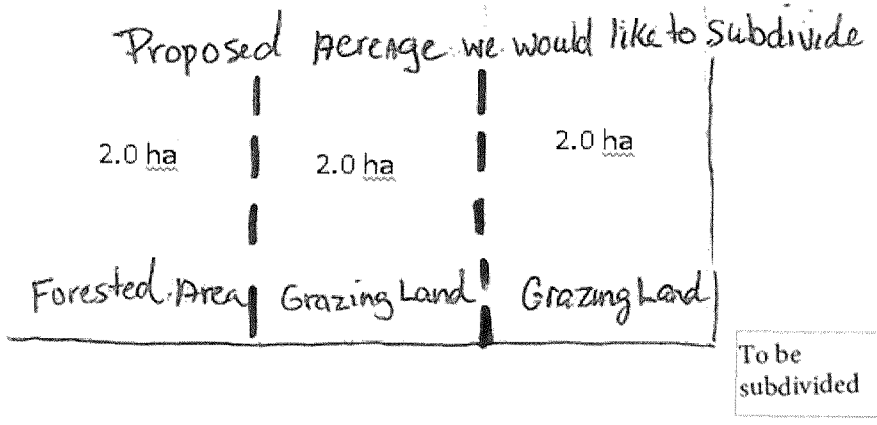 Proposed Acreage we would like to subdivide
2.0 ha 2.0 ha 2.0 ha
Forested Area Grazing Land Grazing Land
To be
subdivided